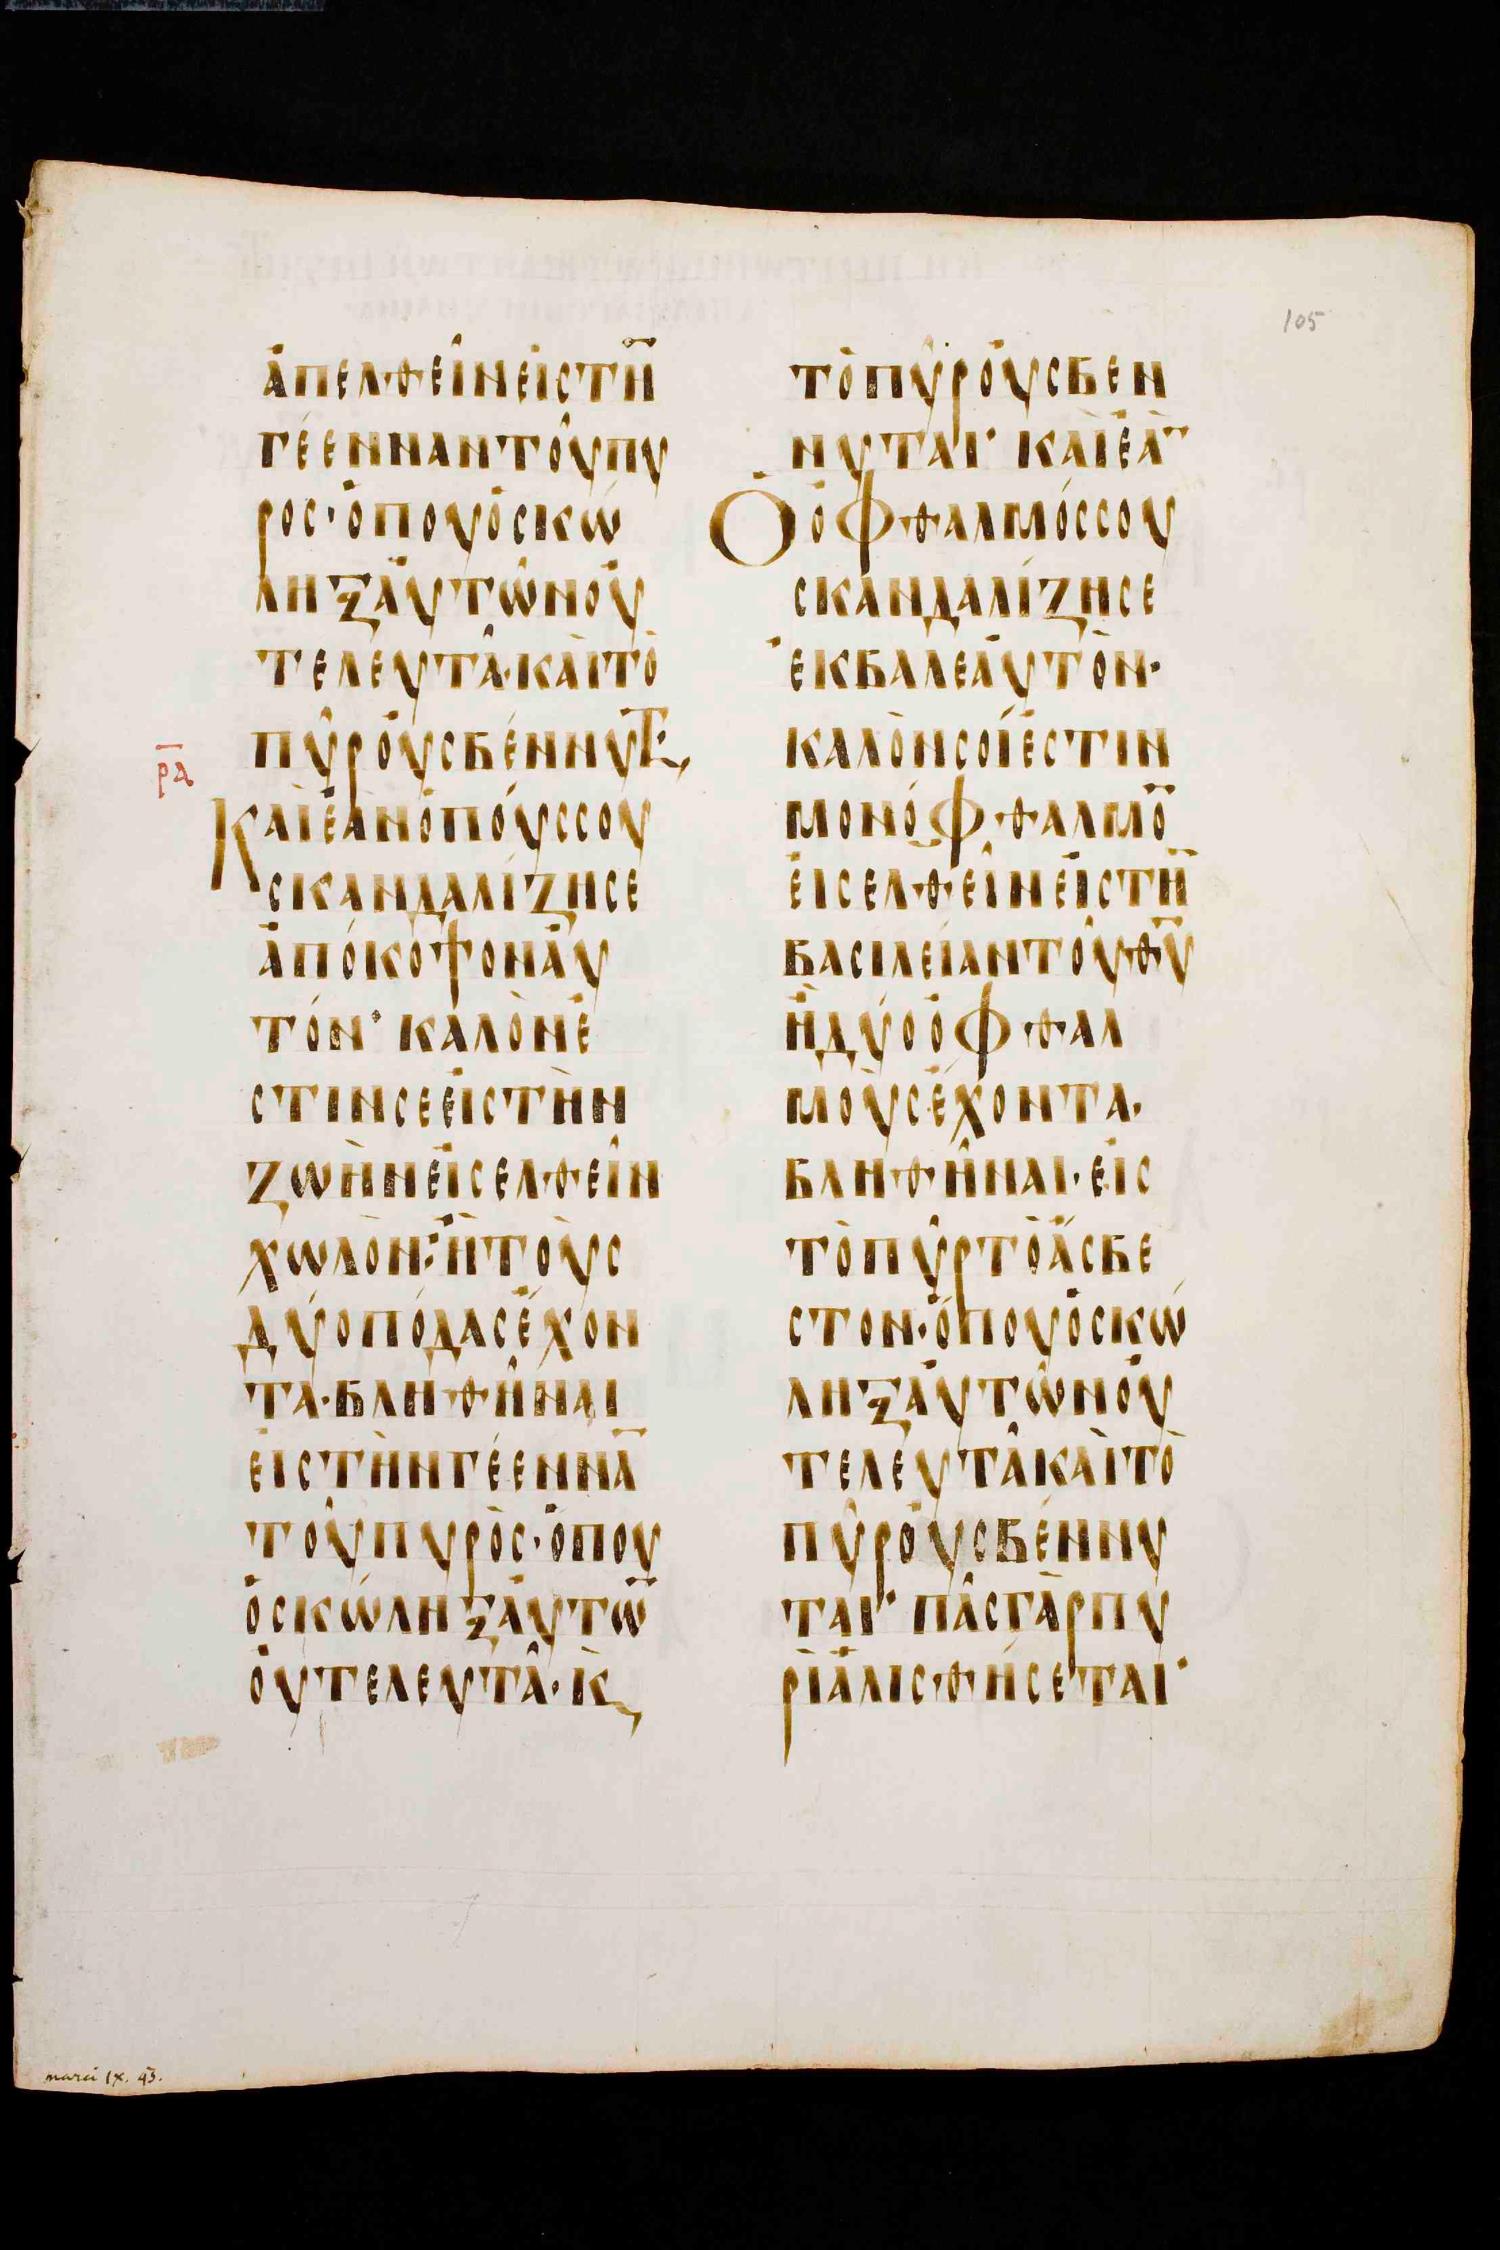 105
ἀπελθεῖνεἰστὴ̅
γέεννἀντοῦπυ
ρος·ὅπουὁσκώ
ληξαὐτῶνοὐ
τελευτᾷ·καὶτὸ
πῦροὐσβέννυτ̅κ̣,
ρ̅α̅
Καὶἐὰνὁπούσσου
σκανδαλίζησε
ἀπόκοψοναὐ
τόν· καλὸνἐ
στινσεεἰστὴν
ζωὴνεἰσελθεῖν
χωλόν·ἢτοὺς
δύοπόδασἔχον
τα·βληθῆναι
εἰστὴνγέεννα̅
τοῦπυρὸς·ὅπου
ὁσκώληξαὐτῶ̅
οὐτελευτᾷ·κ̀
τὸπῦροὐσβεν
νυται· καὶἐὰ̅
Ὁὀφθαλμόσσου
σκανδαλίζησε
ἔκβαλεαὐτὸν·
καλὸνσοῖἐστιν
μονόφθαλμο̅
εἰσελθεῖνεἰστὴ̅
βασιλείαντοῦθ̅υ̅
ἢδύοὀφθαλ
μοὺσἔχοντα·
βληθῆναι·εἰς
τὸπῦρτὸἄσβε
στον·ὅπουὁσκώ
ληξαὐτῶνοὐ
τελευτᾷκαὶτὸ
πῦροὐσβέννυ
ται· πᾶσγὰρπυ
ρὶἁλισθήσεται·
marci IX. 43.